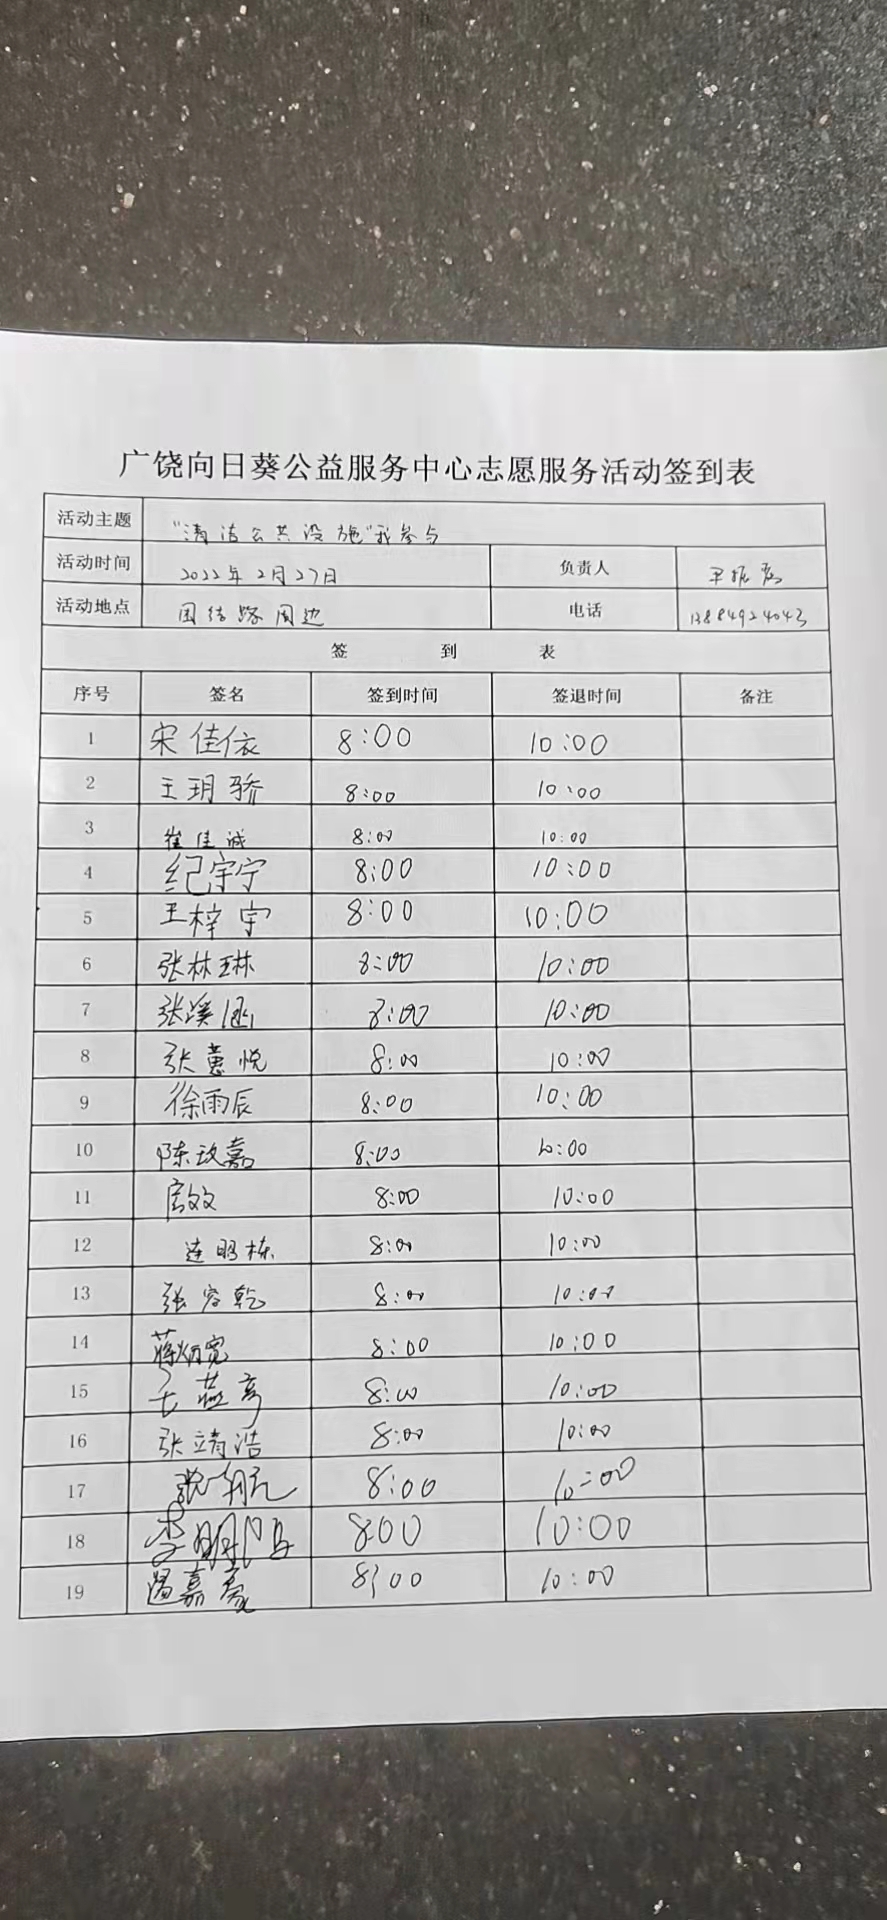 广饶向日葵公益服务中心志愿服务活动签到表
活动主题 "清洁公共设施"我参与
活动时间 2022年2月27日 负责人
活动地点 团结路周边 电话 13884924043
签 到 表
序号 签名 签到时间 签退时间 备注
1 宋佳依 8:00 10:00
2 王玥骄 8:00 10:00
3 崔佳诚 8:00 10:00
4 纪宇宁 8:00 10:00
5 王梓宇 8:00 10:00
6 张林琳 8:00 10:00
7 张溪涵 8:00 10:00
8 张薏悦 8:00 10:00
9 徐雨辰 8:00 10:00
10 陈玟嘉 8:00 10:00
11 8:00 10:00
12 连明栋 8:00 10:00
13 张容乾 8:00 10:00
14 蒋炳宽 8:00 10:00
15 8:00 10:00
16 张靖浩 8:00 10:00
17 8:00 10:00
18 李明阳 800 10:00
19 嘉豪 8:00 10:00